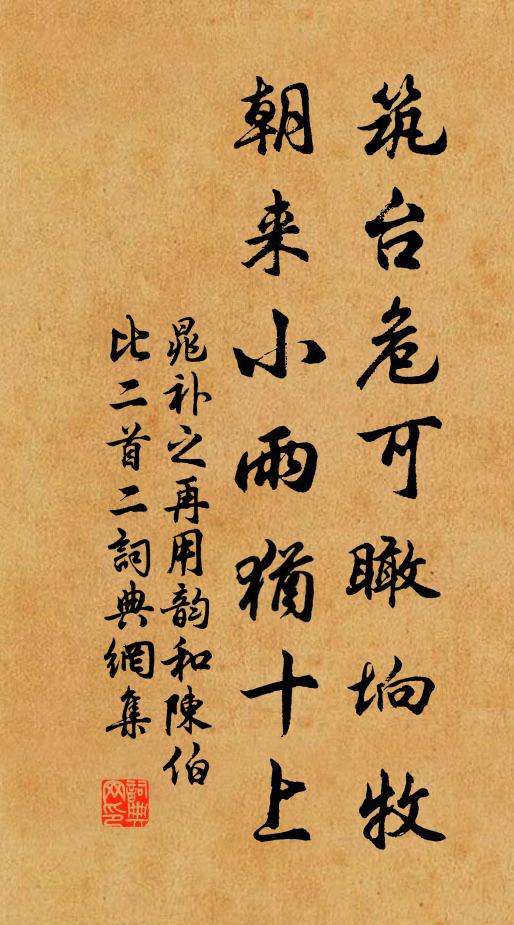 筑台危可瞰坰牧
朝来小雨犹十上
晁补之再用韵和陳伯
比二首二詞典網集
詞典
网印